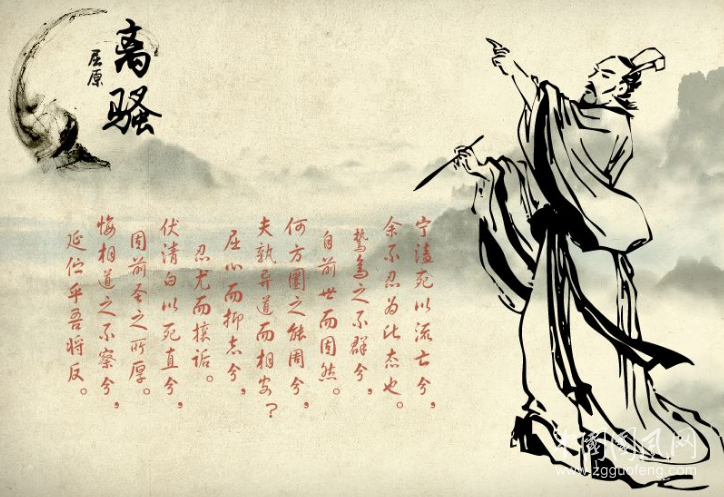 离骚
屈原
宁溘死以流亡兮，
余不忍为此态也。
鸷鸟之不群兮，
自前世而固然。
何方圜之能周兮，
夫孰异道而相安？
屈心而抑志兮，
忍尤而攘诟。
伏清白以死直兮，
固前圣之所厚。
悔相道之不察兮，
延伫乎吾将反。
中国国风网
www.zgguofeng.com